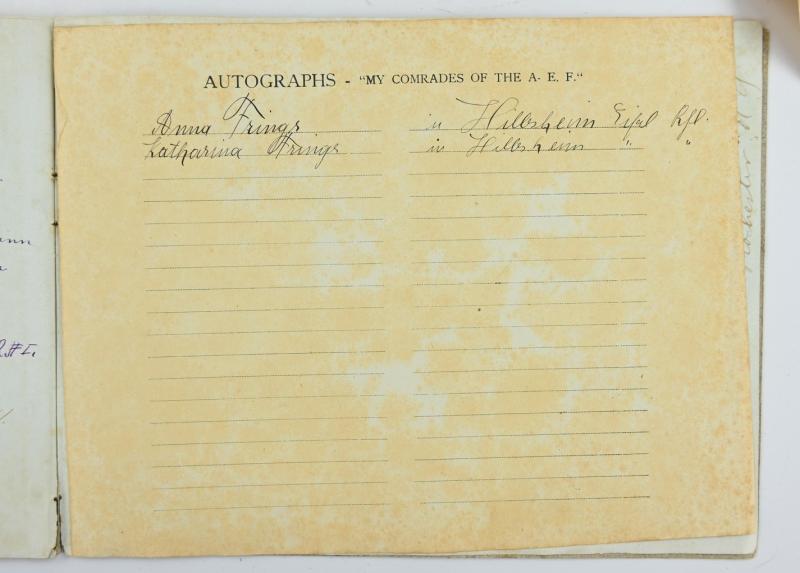 AUTOGRAPHS - "MY COMRADES OF THE A- E. F."
Anna Frings in Hillesheim Eifel
Katharina Frings in Hillesheim " "